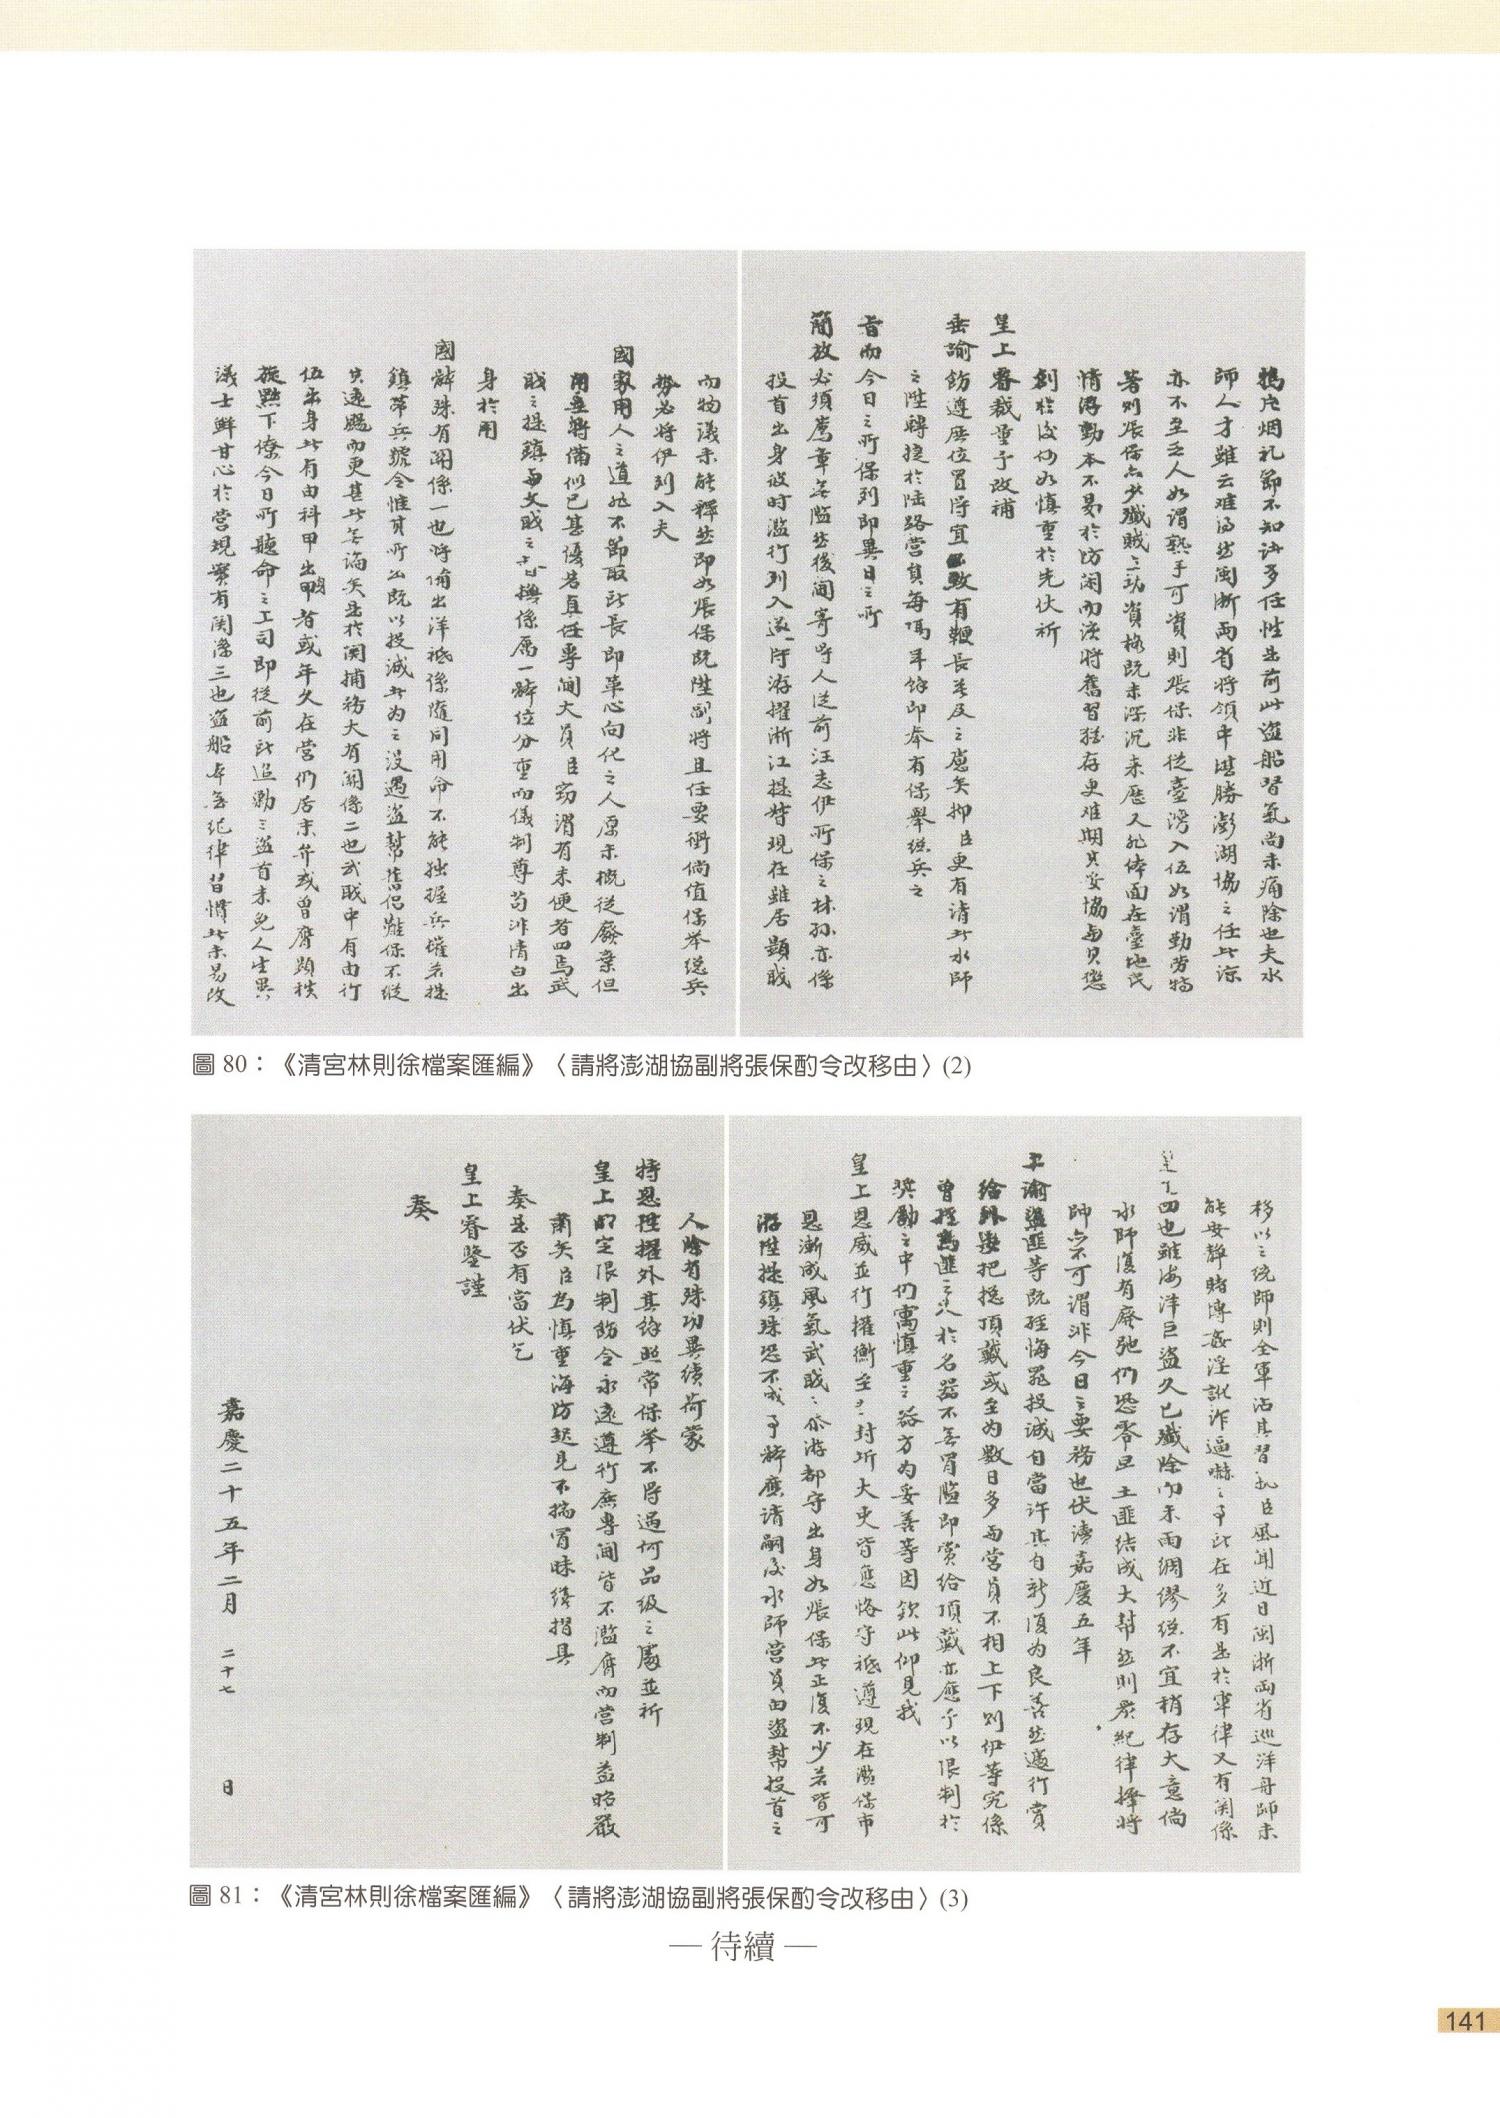 鴉片烟礼節不知訪多任性生前此盜船習氣尚未痛除也夫水
師人才雖云难得然闽浙两省將領中堪勝澎湖協之任此諒
亦不至乏人如谓熟手可資則張保非從臺湾入伍如谓勤劳特
著则張保亦少殲賊之功資格既未深沉来歷又非体面在臺地民
情浮動本不易於防闲而该將舊習猶存更难期其妥協與其懲
創於後何如慎重於先伏祈
皇上睿裁量予改補
垂諭飭遵庶位置得宜無鞭長莫及之慮矣抑臣更有请此水師
之陞轉捷於陆路营員每隔年餘即奉有保舉総兵之
旨而今日之所保列即異日之所
簡放必须薦章無滥然後阃寄得人从前汪志伊所保之林孙亦係
投首出身彼时滥行列入遂一时游擢浙江提督現在雖居顯职
而物議未能釋然即如張保既陞副将且任要衝倘值保举総兵
势必将伊列入夫
國家用人之道非不節取所長即革心向化之人原未概從廢棄但
用至將備似已甚優若真任專阃大員臣窃谓有未便者四焉武
职之提鎮與文职之督撫係属一体位分重而儀制尊苟非清白出
身於用
國體殊有関係一也將備出洋祗係隨同用命不能独握兵权若提
鎮帶兵號令惟其所出既以投誠此为之设遇盜幫舊侣难保不縱
其遠颺而更甚此無論矣是於関捕務大有関係二也武职中有由行
伍出身此有由科甲出身者或年久在营仍居末弁或曾膺顯秩
旋黜下僚今日所聽命之上司即從前所追勦之盜首未免人生異
議士鲜甘心於营規實有関係三也盜船本無紀律習慣此未易改
圖 80：《清宮林則徐檔案匯編》〈請將澎湖協副將張保酌令改移由〉(2)
移以之统師則全軍沾其習氣臣風聞近日闽浙两省巡洋舟師未
能安靜賭博姦淫訛詐逼嚇之事所在多有是於軍律又有関係
此其四也雖海洋巨盜久已殲除而未雨绸缪终不宜稍存大意倘
水師復有廢弛仍恐零星土匪结成大幫然则嚴紀律擇將
師亦不可谓非今日之要務也伏讀嘉慶五年
上諭盜匪等既經悔罪投诚自當许其自新復为良善然遽行賞
给外委把總頂戴或至为数日多與营員不相上下则伊等究係
曾經为匪之人於名器不無冒滥即賞给頂戴亦應予以限制於
奖勵之中仍寓慎重之為方为妥善等因钦此仰見我
皇上恩威並行權衡至當封圻大吏皆應恪守祗遵現在滥保市
恩漸成風氣武职之參游都守出身如張保此正復不少若皆可
游陞提鎮殊恐不成事體應请嗣後水師营員由盜幫投首之
人除有殊功異績荷蒙
特恩陞擢外其餘照常保举不得過何品級之處並祈
皇上明定限制飭令永遠遵行庶專阃皆不濫膺而营制益昭嚴
肅矣臣为慎重海防起見不揣冒昧繕摺具
奏是否有當伏乞
皇上睿鑒謹
奏
嘉慶二十五年二月 二十七 日
圖 81：《清宮林則徐檔案匯編》〈請將澎湖協副將張保酌令改移由〉(3)
— 待續 —
141